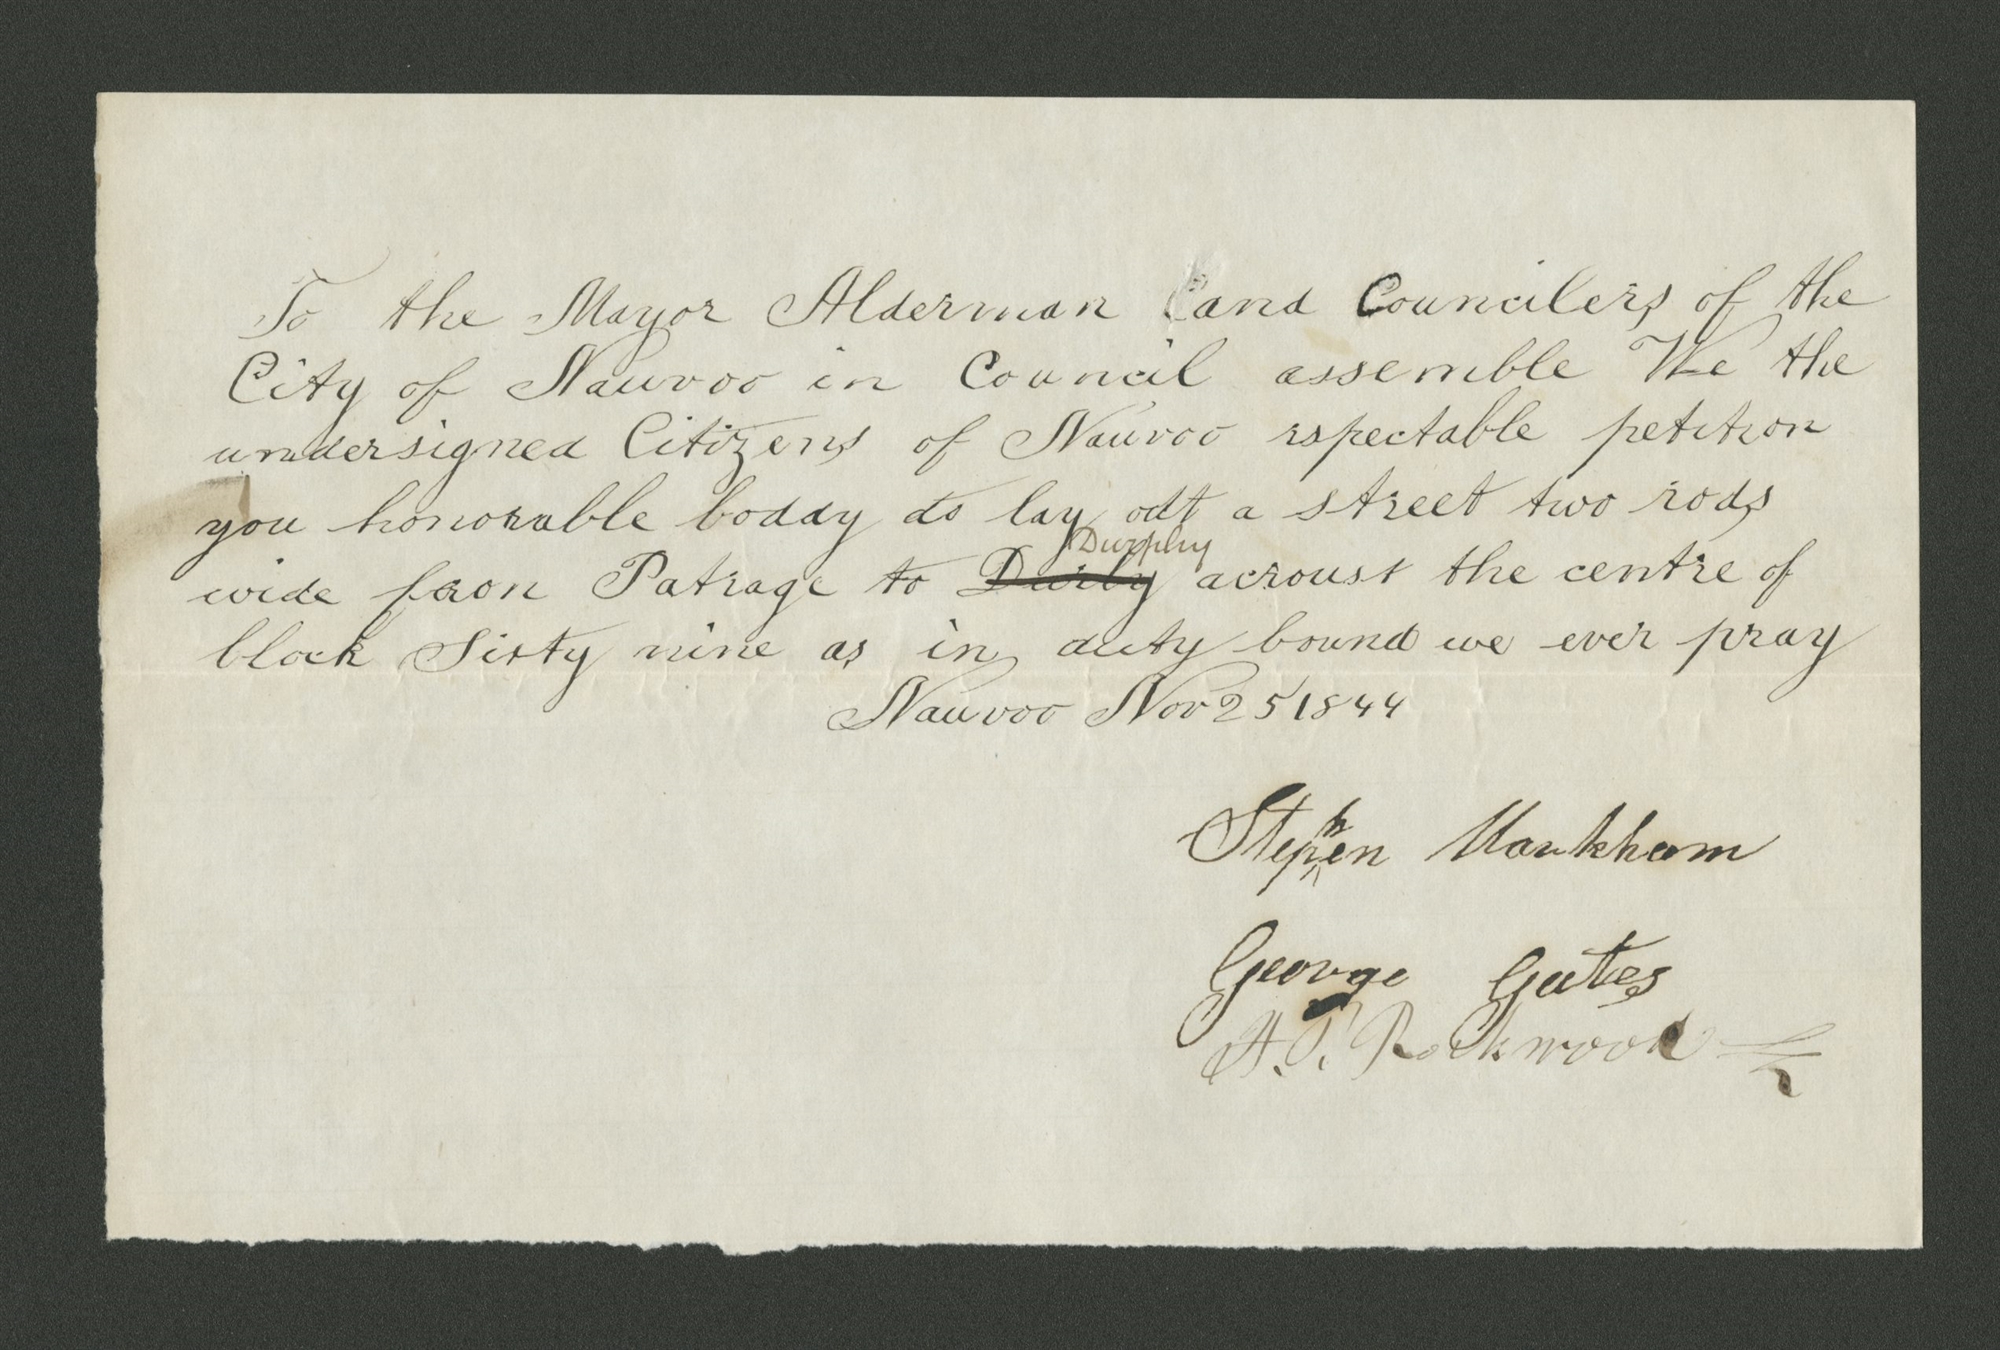 To the Mayor Alderman and Councilers of the
City of Nauvoo in Council assemble We the
undersigned Citizens of Nauvoo rspectable petition
you honorable boddy to lay out a street two rods
Durphy
wide from Patrage to Durby acroust the centre of
block Sixty nine as in duty bound we ever pray
Nauvoo Nov 25 1844
Stephen Markham
George Gates
A. P. Rockwood